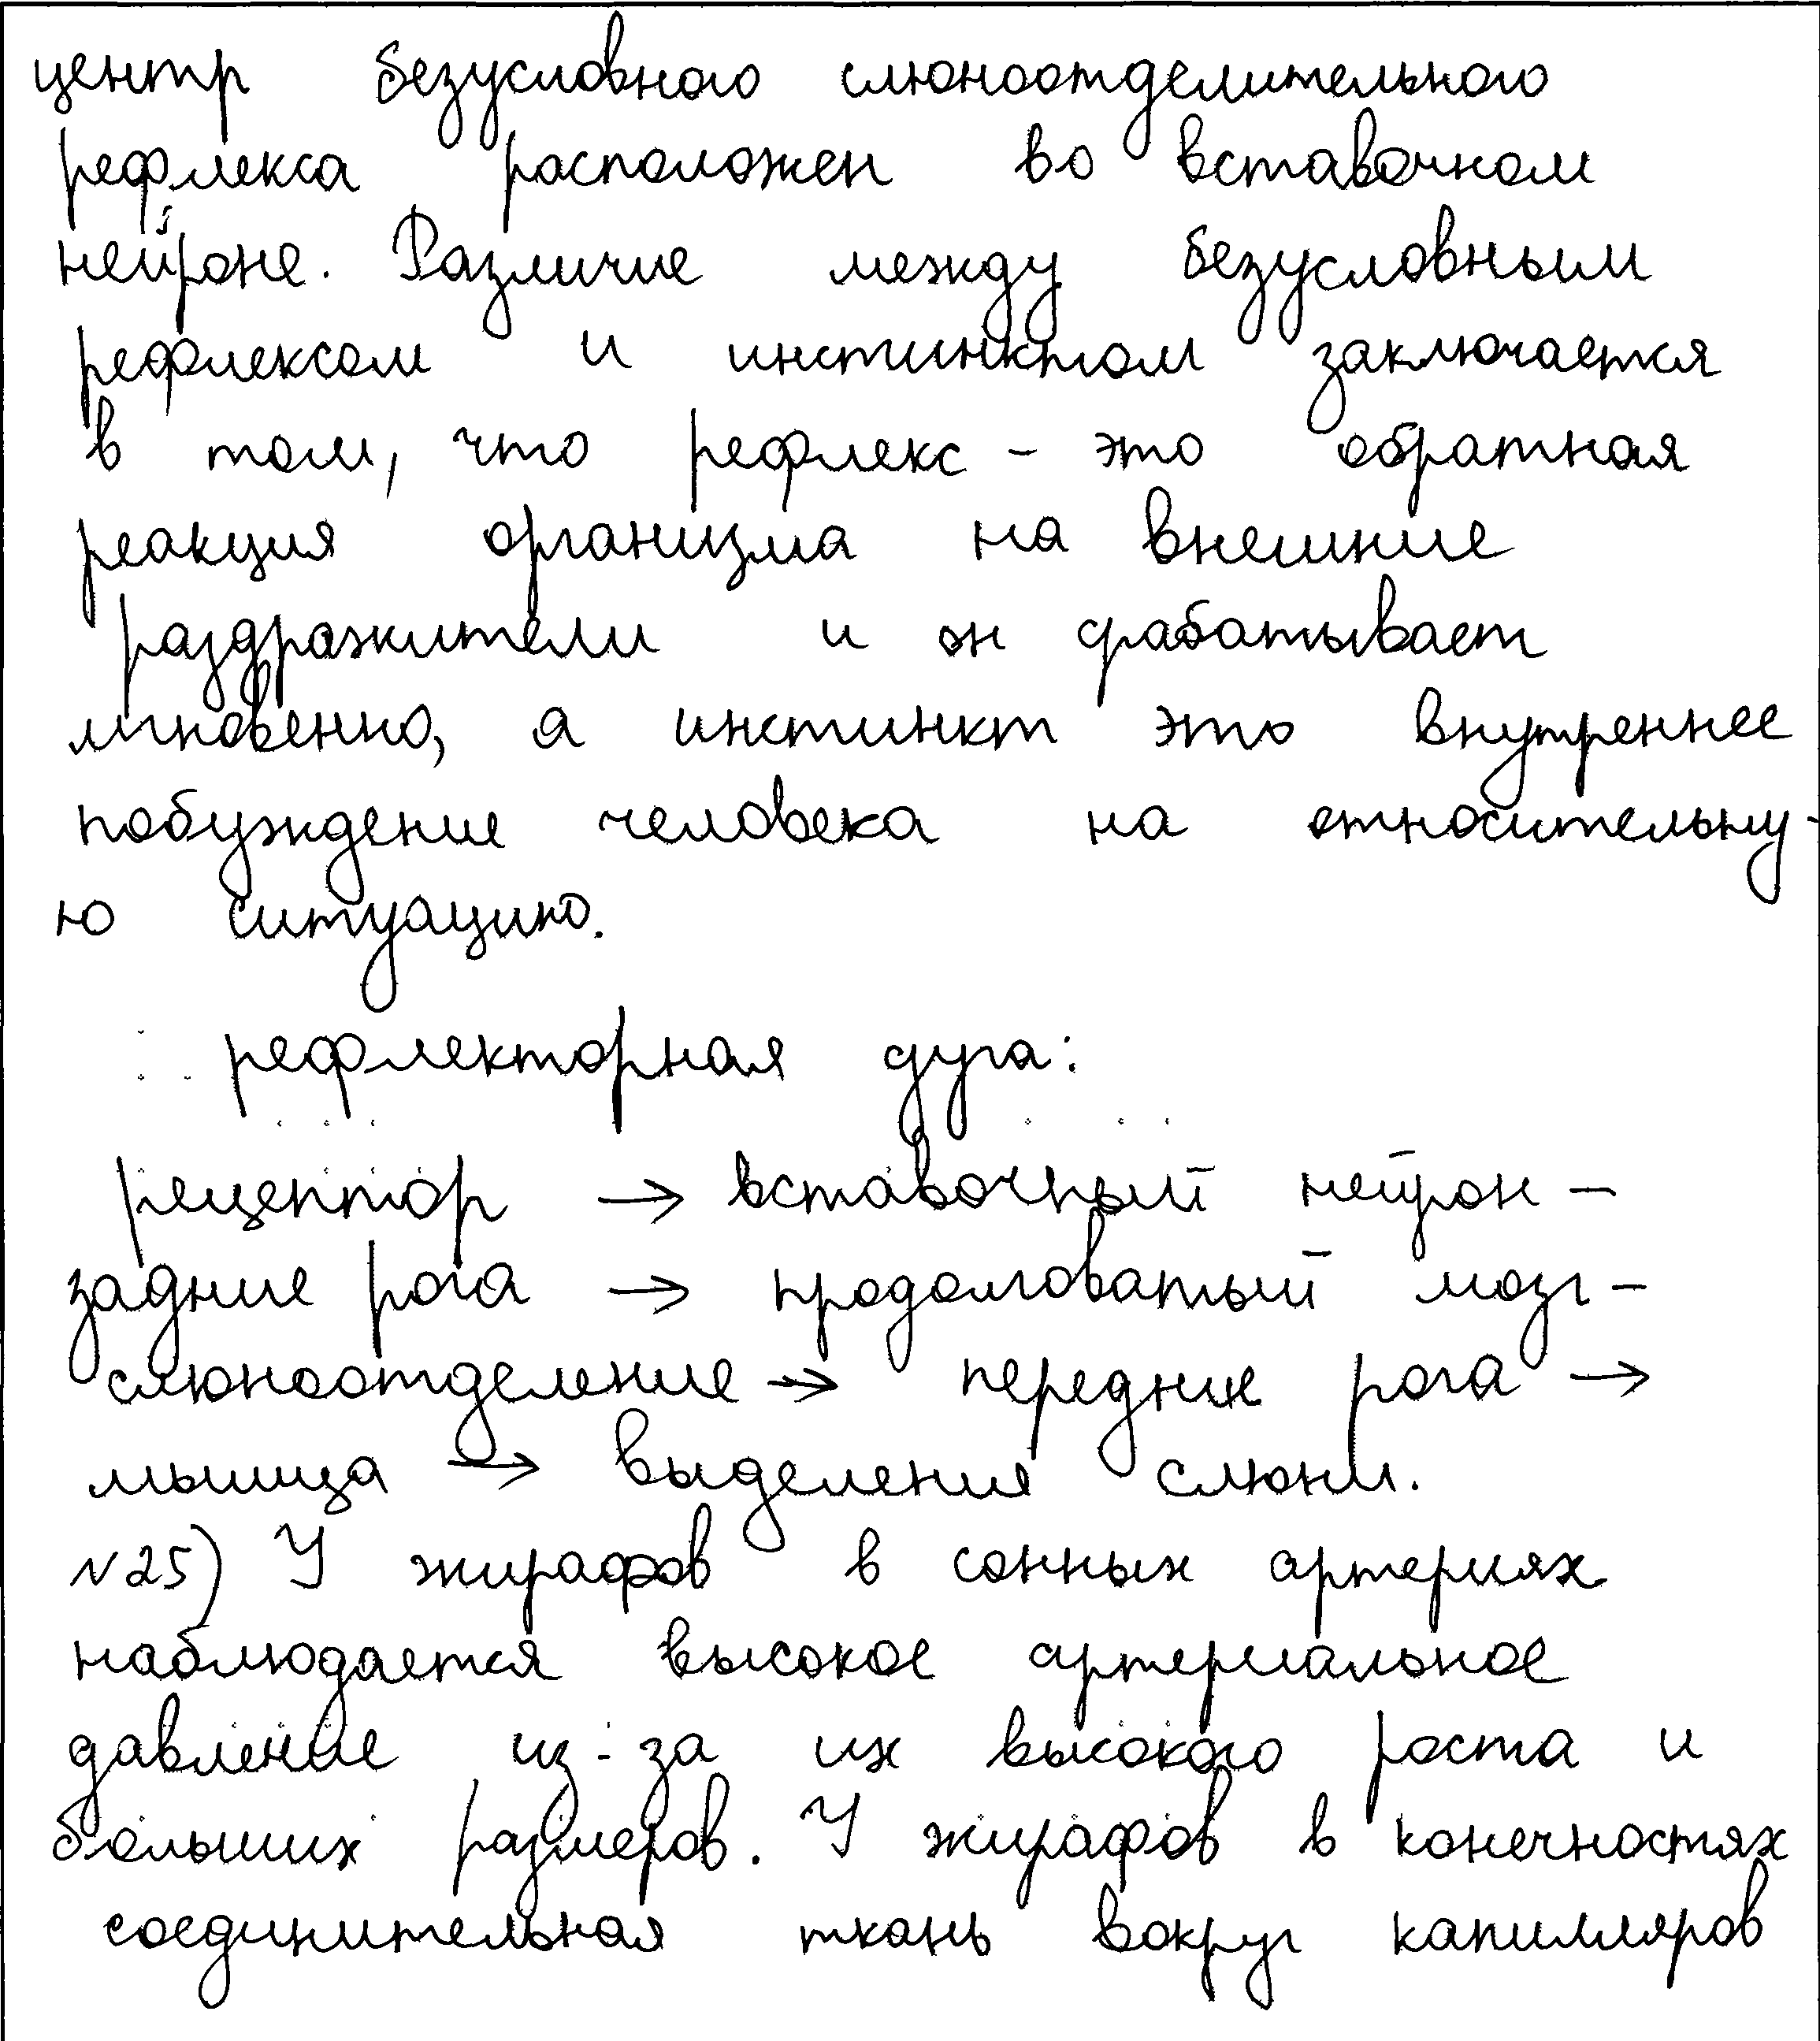 центр безусловного слюноотделительного
рефлекса расположен во вставочном
нейроне. Различие между безусловным
рефлексом и инстинктом заключается
в том, что рефлекс - это обратная
реакция организма на внешние
раздражители и он срабатывает
мгновенно, а инстинкт это внутреннее
побуждение человека на относительну-
ю ситуацию.
рефлекторная дуга:
рецептор → вставочный нейрон -
задние рога → продолговатый мозг -
слюноотделение → передние рога →
мышца → выделения слюни.
№25) У жирафов в сонных артериях
наблюдается высокое артериальное
давление из-за их высокого роста и
больших размеров. У жирафов в конечностях
соединительная ткань вокруг капилляров